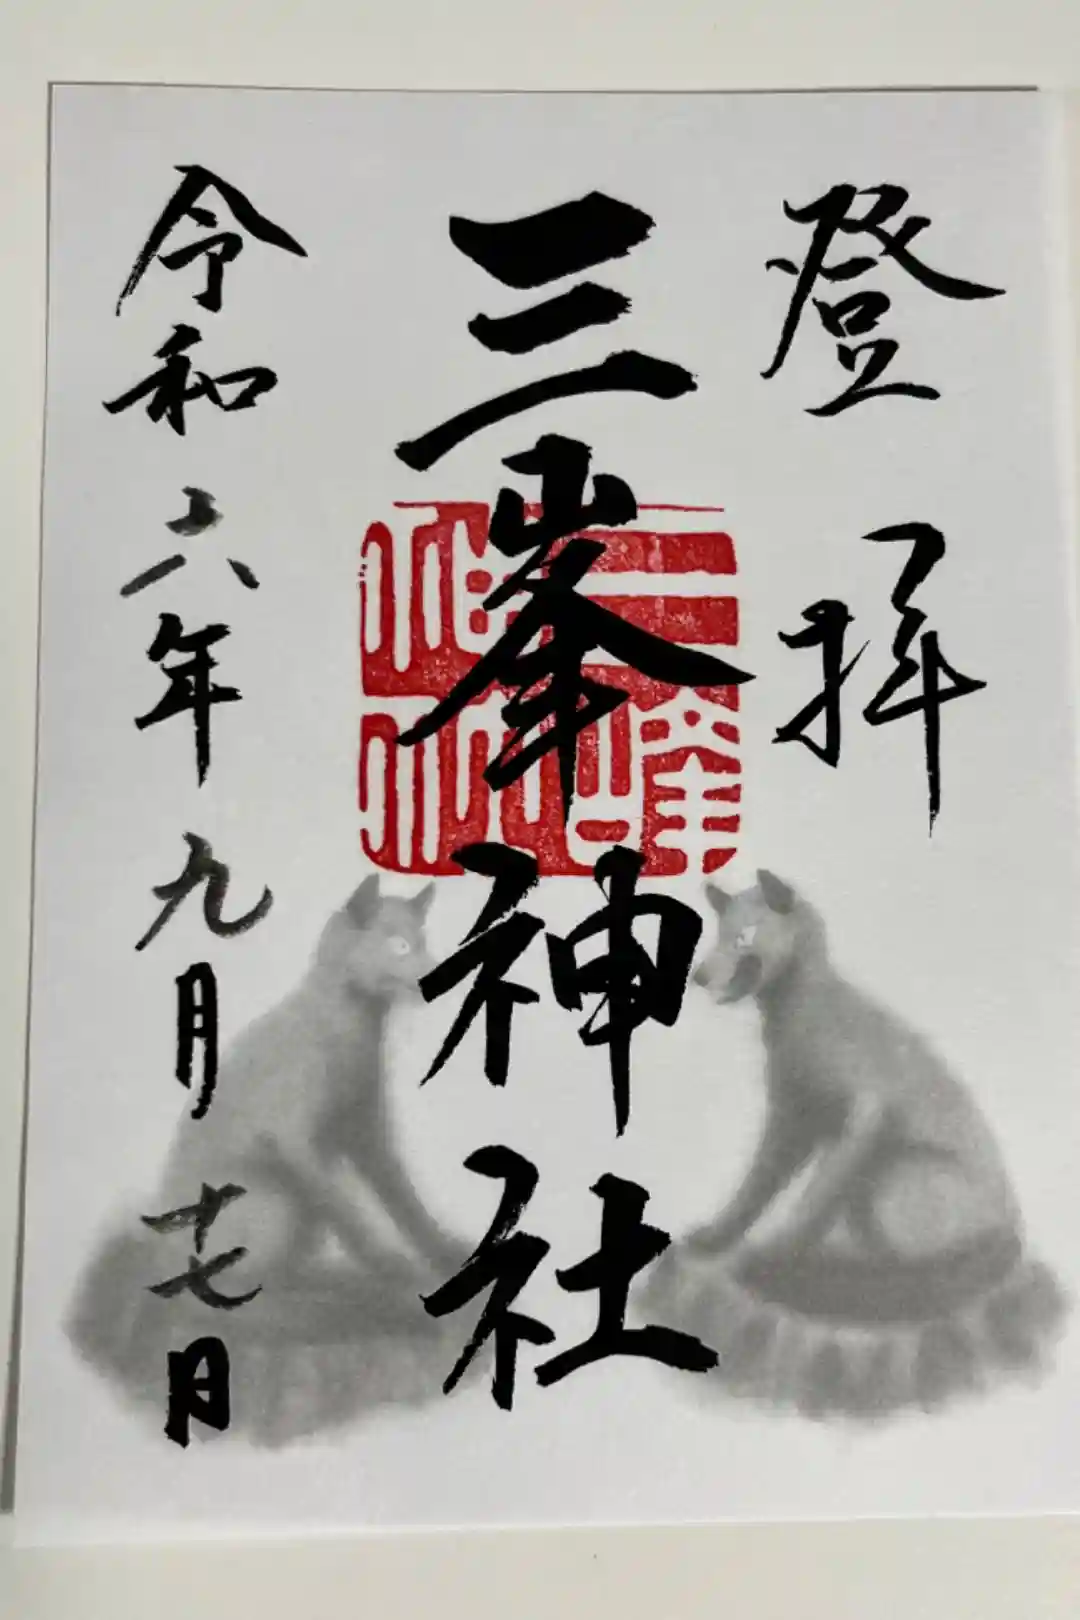 登拝
三峯神社
三峰神社
令和六年九月十七日